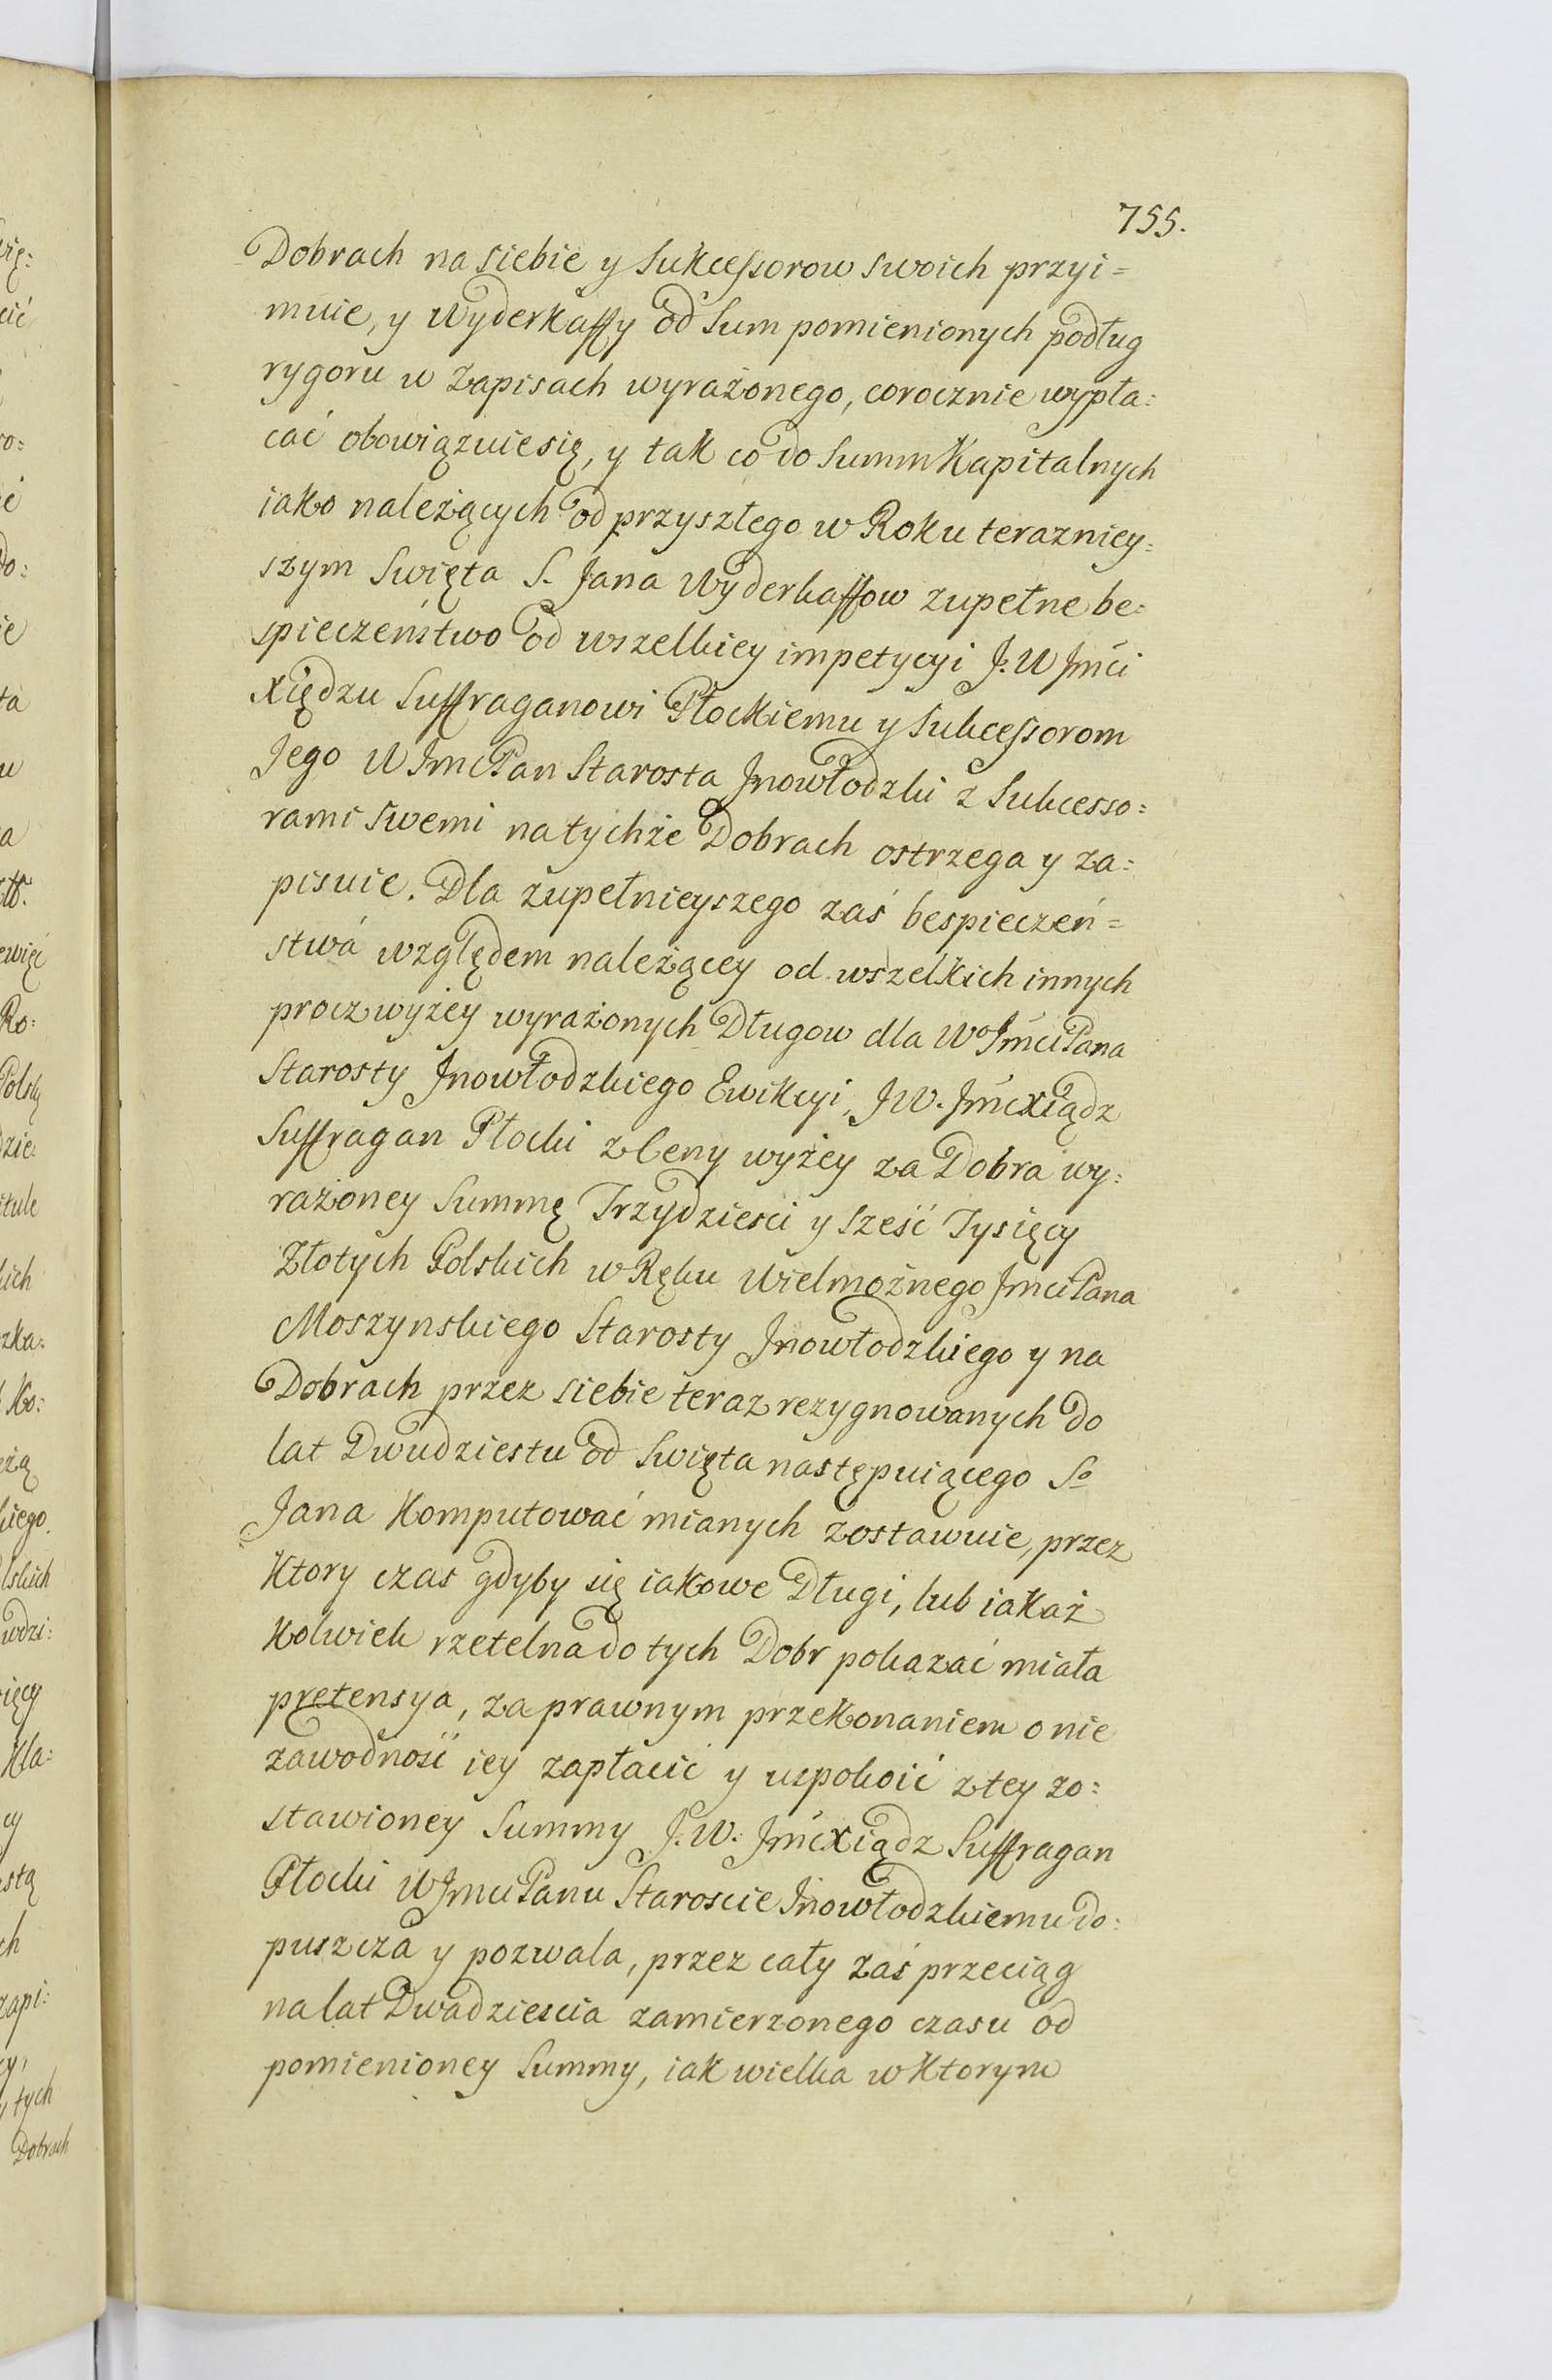 755.
Dobrach na siebie y Sukcessorow swoich przyi=
muie, y Wyderkaffy od Sum pomienionych podług
rygoru w Zapisach wyrażonego, corocznie wypła:
cać obowiązuie się, y tak co do Summ Kapitalnych
iako należących od przyszłego w Roku terazniey:
szym Swięta S. Jana Wyderkaffow zupełne be:
spieczeństwo od wszelkiey impetycyi J. W Jmći
Xiędzu Suffraganowi Płockiemu y Sukcessorom
Jego W Jmci Pan Starosta Jnowłodzki z Sukcesso:
rami swemi na tychże Dobrach ostrzega y za:
pisuie. Dla zupełnieyszego zaś bespieczeń=
stwá względem należącey od wszelkich innych
procz wyżey wyrażonych Długow dla Wo Jmći Pana
Starosty Jnowłodzkiego Ewikcyi, JW. Jmć Xiądz
Suffragan Płocki z Ceny wyżey za Dobra wy:
rażoney Summę Trzydzieści y Sześć Tysięcy
Złotych Polskich w Ręku Wielmożnego Jmci Pana
Moszynskiego Starosty Jnowłodzkiego y na
Dobrach przez siebie teraz rezygnowanych do
lat Dwudziestu od Swięta następuiącego So
Jana Komputować mianych zostawuie, przez
Ktory czas gdyby się iakowe Długi, lub iakaż
Kolwiek rzetelna do tych Dobr pokazać miała
pretensya, za prawnym przekonaniem o nie
zawodność iey zapłacić y uspokoić z tey zo:
stawioney Summy J. W. Jmć Xiądz Suffragan
Płocki W Jmci Panu Staroscie Jnowłodzkiemu do:
puszcza y pozwala, przez cały zaś przeciąg
na lat Dwadziescia zamierzonego czasu od
pomienioney Summy, iak wielka w Ktorym